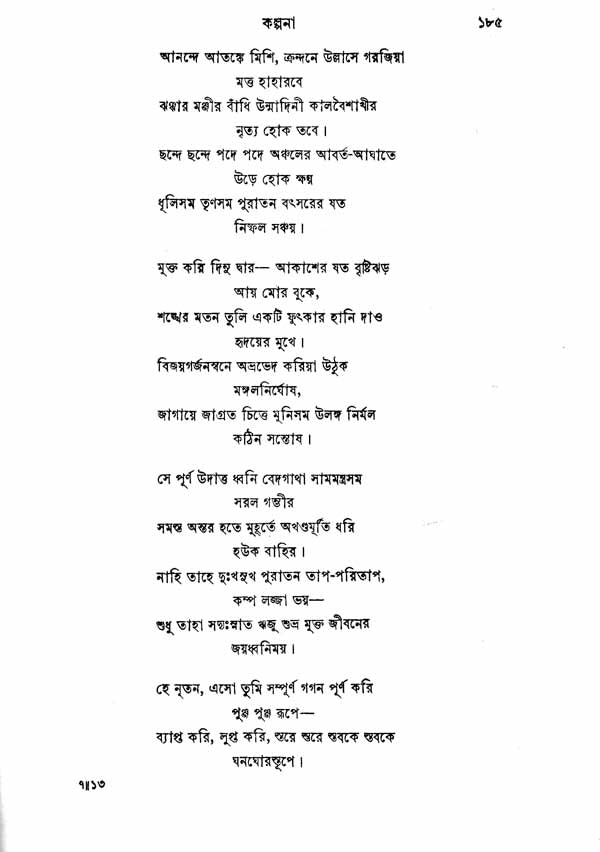 কল্পনা ১৮৫
আনন্দে আতঙ্কে মিশি, ক্রন্দনে উল্লাসে গরজিয়া
মত্ত হাহারবে
ঝঞ্ঝার মঞ্জীর বাঁধি উন্মাদিনী কালবৈশাখীর
নৃত্য হোক তবে।
ছন্দে ছন্দে পদে পদে অঞ্চলের আবর্ত-আঘাতে
উড়ে হোক ক্ষয়
ধূলিসম তৃণসম পুরাতন বৎসরের যত
নিষ্ফল সঞ্চয়।
মুক্ত করি দিনু দ্বার— আকাশের যত বৃষ্টিঝড়
আয় মোর বুকে,
শঙ্খের মতন তুলি একটি ফুৎকার হানি দাও
হৃদয়ের মুখে।
বিজয়গর্জনস্বনে অভ্রভেদ করিয়া উঠুক
মঙ্গলনির্ঘোষ,
জাগায়ে জাগ্রত চিত্তে মুনিসম উলঙ্গ নির্মল
কঠিন সন্তোষ।
সে পূর্ণ উদাত্ত ধ্বনি বেদগাথা সামমন্ত্রসম
সরল গম্ভীর
সমস্ত অন্তর হতে মুহূর্তে অখণ্ডমূর্তি ধরি
হউক বাহির।
নাহি তাহে দুঃখসুখ পুরাতন তাপ-পরিতাপ,
কম্প লজ্জা ভয়—
শুধু তাহা সদ্যঃস্নাত ঋজু শুভ্র মুক্ত জীবনের
জয়ধ্বনিময়।
হে নূতন, এসো তুমি সম্পূর্ণ গগন পূর্ণ করি
পুঞ্জ পুঞ্জ রূপে—
ব্যাপ্ত করি, লুপ্ত করি, স্তরে স্তরে স্তবকে স্তবকে
ঘনঘোরস্তূপে।
৭॥১৩